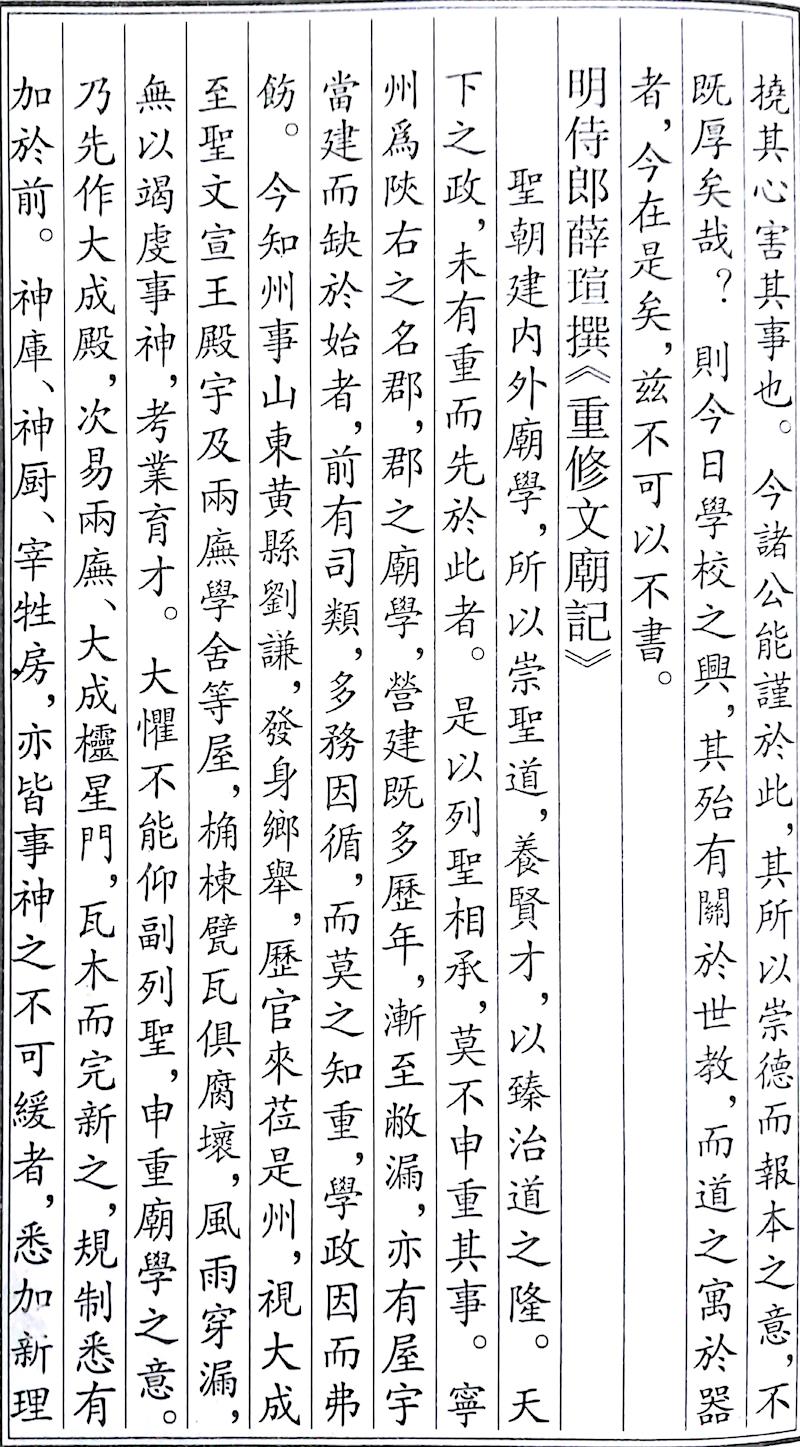 撓其心害其事也。今諸公能謹於此，其所以崇德而報本之意，不
既厚矣哉？則今日學校之興，其殆有關於世教，而道之寓於器
者，今在是矣，兹不可以不書。
明侍郎薛瑄撰《重修文廟記》
聖朝建内外廟學，所以崇聖道，養賢才，以臻治道之隆。天
下之政，未有重而先於此者。是以列聖相承，莫不申重其事。寧
州爲陝右之名郡，郡之廟學，營建既多歷年，漸至敝漏，亦有屋宇
當建而缺於始者，前有司類，多務因循，而莫之知重，學政因而弗
飭。今知州事山東黄縣劉謙，發身鄉舉，歷官來莅是州，視大成
至聖文宣王殿宇及兩廡學舍等屋，桷棟甓瓦俱腐壞，風雨穿漏，
無以竭虔事神，考業育才。大懼不能仰副列聖，申重廟學之意。
乃先作大成殿，次易兩廡、大成櫺星門，瓦木而完新之，規制悉有
加於前。神庫、神厨、宰牲房，亦皆事神之不可緩者，悉加新理